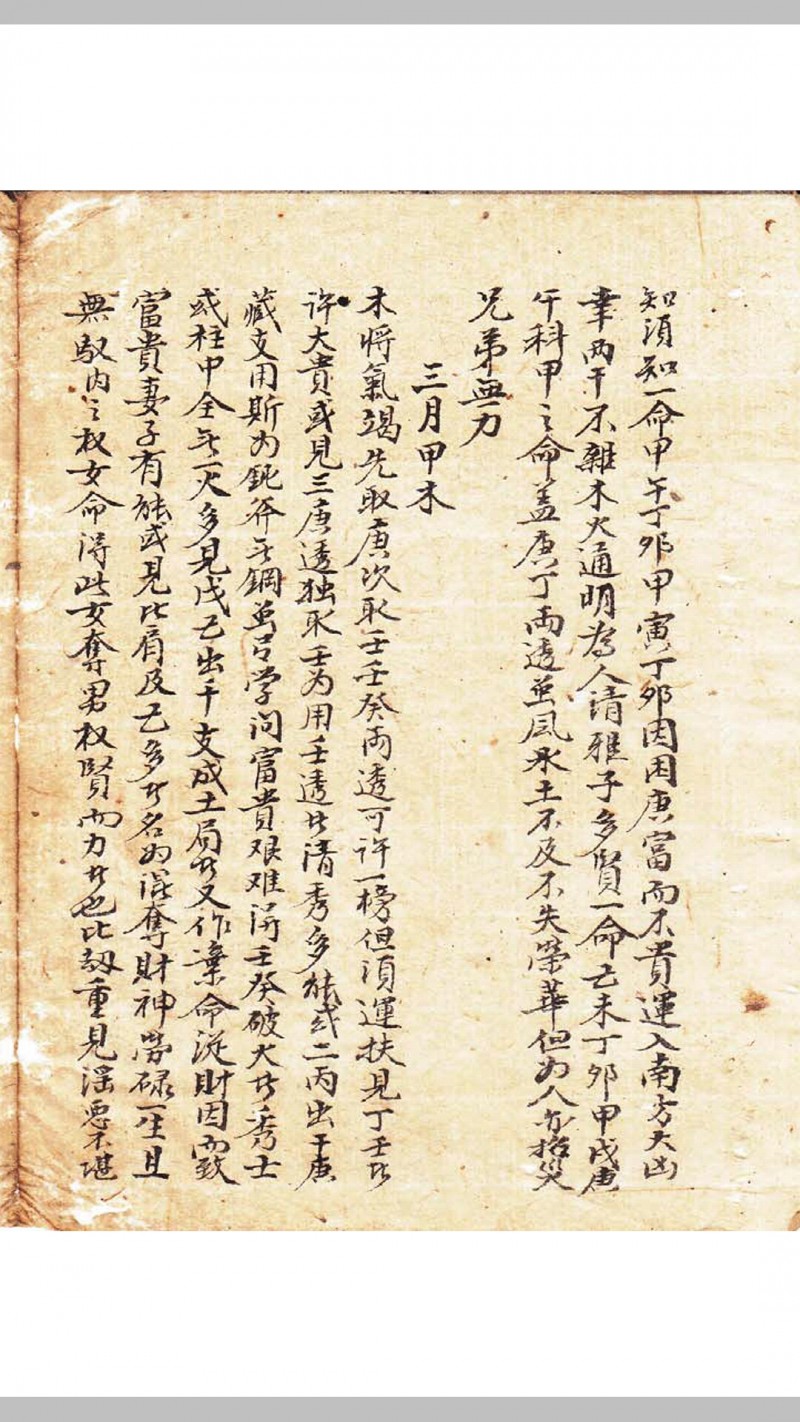 知須知一命甲午丁卯甲寅丁卯因困庚富而不貴運入南方大凶
幸两干不雜木火通明為人清雅子多賢一命己未丁卯甲戌庚
午科甲之命盖庚丁両透並風水土不及不失榮華但為人亦招災
兄弟無力
三月甲木
木將氣竭先取庚次取壬壬癸両透可许一榜但須運扶見丁壬此
许大貴或見三庚透独取壬为用壬透此清秀多能或二丙出干庚
藏支用斯为鈍斧无鋼並弓学问富貴艰难得壬癸破火此秀士
或柱中全无一火多見戊己出干支成土局此又作棄命從財因而致
富貴妻子有能或見比肩及己多此名为混奪財神勞碌一生且
無馭內之权女命得此女奪男权賢而力此也比刼重見淫惡不堪